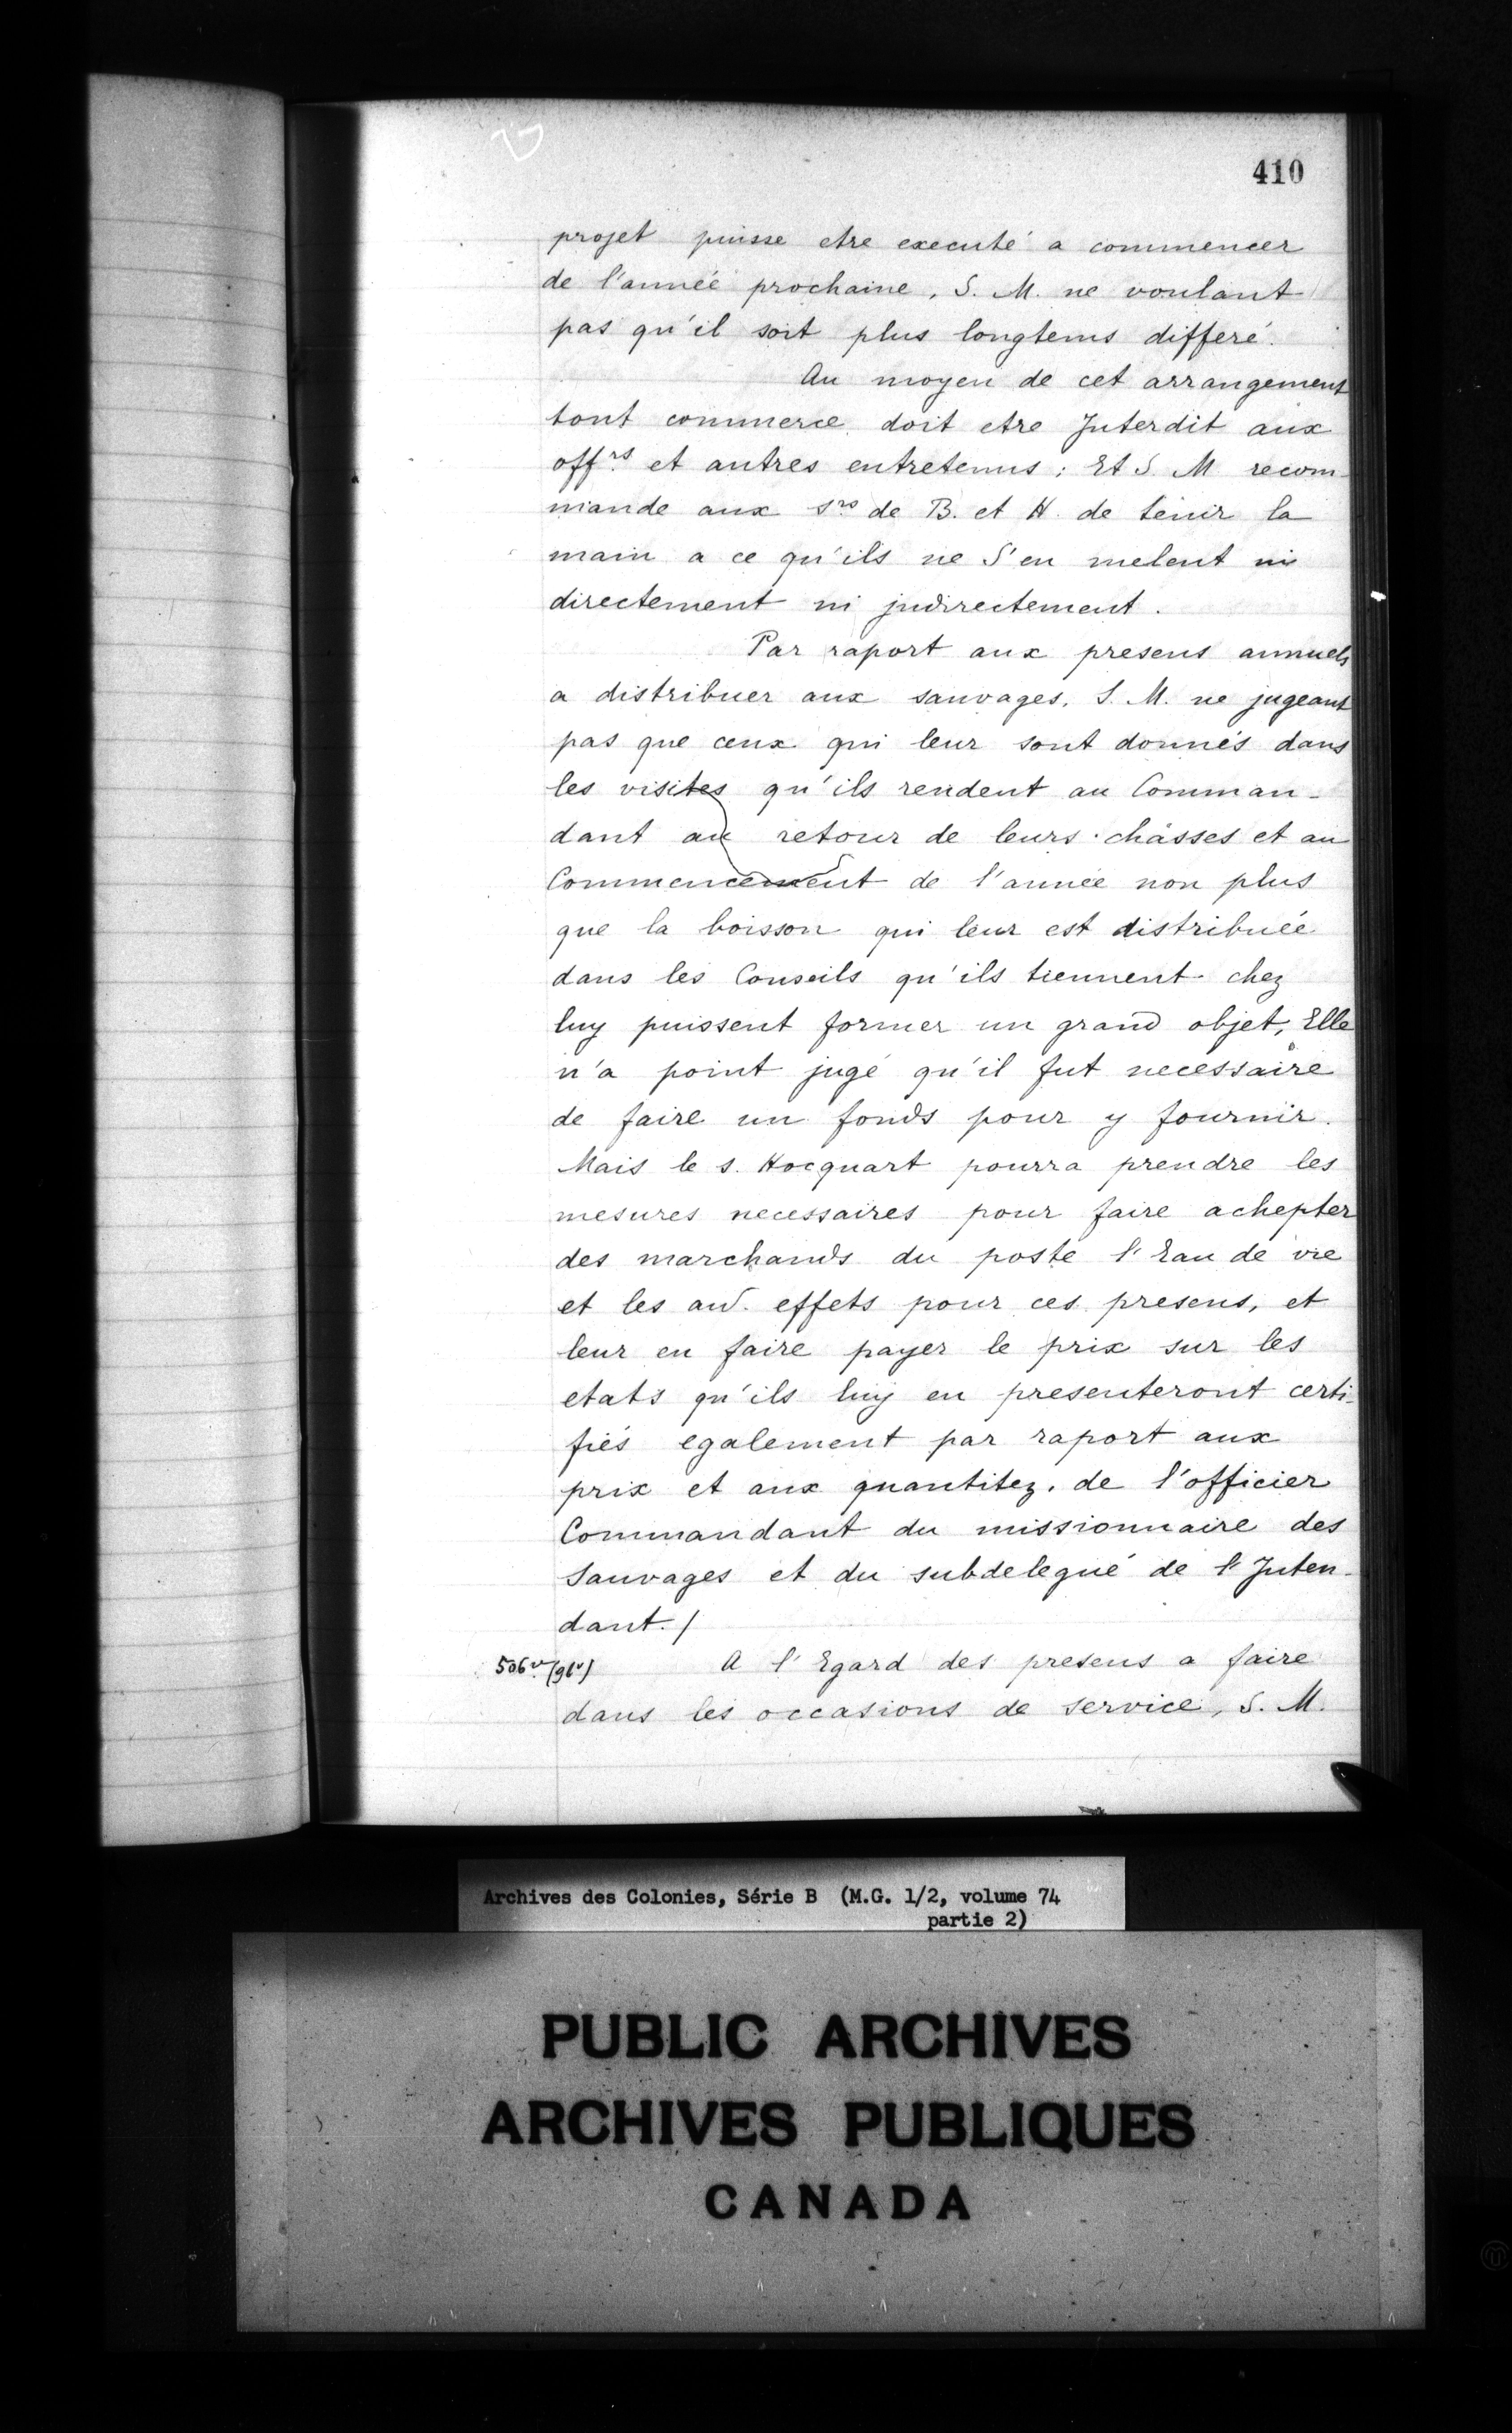 410
projet puisse etre executé a commencer
de l'année prochaine, S. M. ne voulant
pas qu'il soit plus longtems differé.
Au moyen de cet arrangement
tout commerce doit etre Interdit aux
offrs et autres entretenus; Et S. M recom-
mande aux srs de B. et H. de tenir la
main a ce qu'ils ne S'en melent ni
directement ni jndirectement.
Par raport aux presens annuels
a distribuer aux sauvages, S. M. ne jugeant
pas que ceux qui leur sont donnés dans
les visites qu'ils rendent au Comman-
dant au retour de leurs chasses et au
Commencement de l'année non plus
que la boisson qui leur est distribuée
dans les Conseils qu'ils tiennent chez
luy puissent former un grand objet, Elle
n'a point jugé qu'il fut necessaire
de faire un fonds pour y fournir.
Mais le s. Hocquart pourra prendre les
mesures necessaires pour faire achepter
des marchands du poste l'Eau de vie
et les aud. effets pour ces presens, et
leur en faire payer le prix sur les
etats qu'ils luy en presenteront certi-
fiés egalement par raport aux
prix et aux quantitez, de l'officier
Commandant du missionnaire des
Sauvages et du subdelegué de l'Inten-
dant./
506vo (91v) A l'Egard des presens a faire
dans les occasions de service, S. M.
Archives des Colonies, Série B (M.G. 1/2, volume 74
partie 2)
PUBLIC ARCHIVES
ARCHIVES PUBLIQUES
CANADA